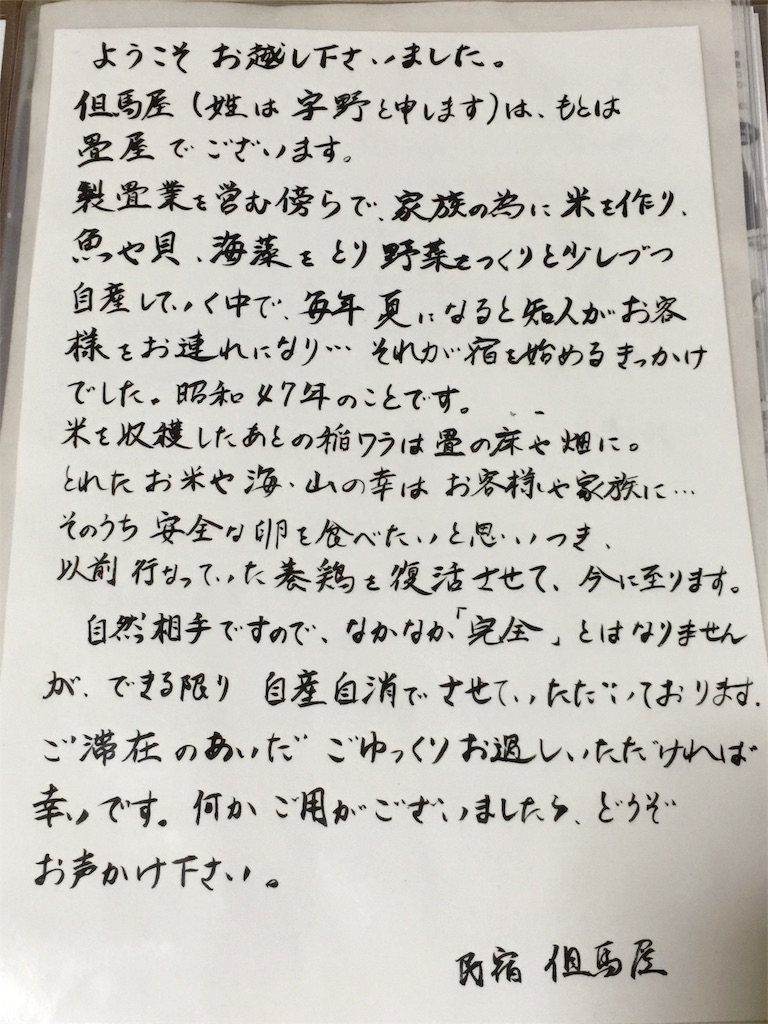 ようこそ お越し下さいました。
但馬屋(姓は 宇野と申します)は、もとは
畳屋でございます。
製畳業を営む傍らで、家族の為に米を作り、
魚や貝、海藻をとり野菜をつくりと少しづつ
自産していく中で、毎年夏になると知人がお客
様をお連れになり… それが宿を始めるきっかけ
でした。昭和47年のことです。
米を収穫したあとの稲ワラは畳の床や畑に。
とれたお米や海・山の幸は お客様や家族に…
そのうち安全な卵を食べたいと思いつき、
以前行なっていた養鶏を復活させて、今に至ります。
自然相手ですので、なかなか「完全」とはなりません
が、できる限り 自産自消でさせていただいております。
ご滞在のあいだ ごゆっくりお過しいただければ
幸いです。何か ご用がございましたら、どうぞ
お声かけ下さい。
民宿 但馬屋